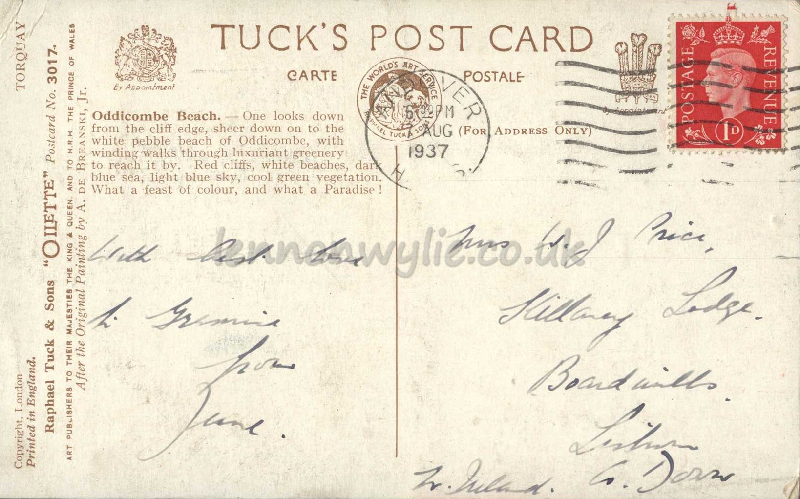 TORQUAY
Copyright, London
Printed in England.
Raphael Tuck & Sons "OILETTE" Postcard No. 3017.
ART PUBLISHERS TO THEIR MAJESTIES THE KING & QUEEN, AND TO H.R.H. THE PRINCE OF WALES
After the Original Painting by A. DE BREANSKI, Jr.
By Appointment
TUCK'S POST CARD
CARTE POSTALE
THE WORLD'S ART SERVICE
RAPHAEL TUCK & SONS
(FOR ADDRESS ONLY)
PM
AUG
1937
POSTAGE REVENUE
1D
Oddicombe Beach. — One looks down
from the cliff edge, sheer down on to the
white pebble beach of Oddicombe, with
winding walks through luxuriant greenery
to reach it by. Red cliffs, white beaches, dark
blue sea, light blue sky, cool green vegetation.
What a feast of colour, and what a Paradise!
With best love
from
June.
Mrs W J Price,
Killaney Lodge.
Boardmills.
Lisburn
Co. Down
N. Ireland.
lenneawylie.co.uk